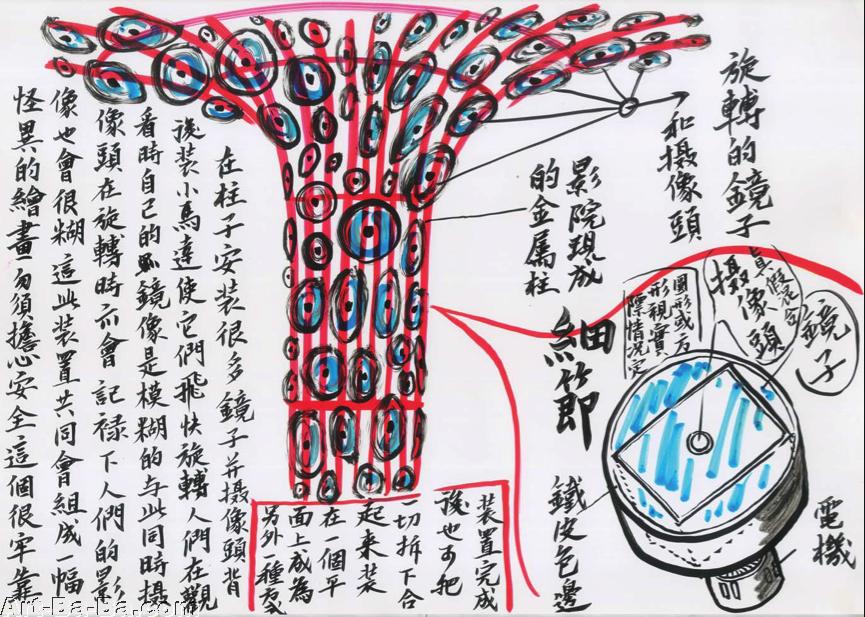 旋轉的鏡子
和摄像頭
影院現成
的金属柱
細節
鏡子
真假混合
摄像頭
圓形或方
形視實
際情況定
電機
鐵皮包邊
装置完成
後也可把
一切拆下合
起来装
在一個平
面上成為
另外一種
在柱子安装很多鏡子并摄像頭背
後装小馬達使它們飛快旋轉人們在觀
看時自己的鏡像是模糊的与此同時摄
像頭在旋轉時亦會記禄下人們的影
像也會很糊這些装置共同會組成一幅
怪異的繪畫勿須擔心安全這個很牢靠
Art-Ba-Ba.com